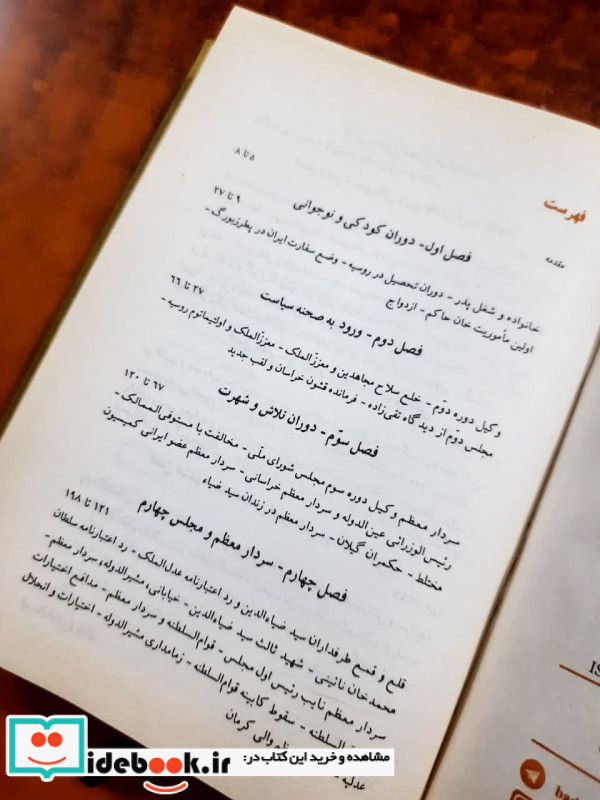 فهرست
مقدمه
۵ تا ۸
فصل اول - دوران کودکی و نوجوانی
۹ تا ۲۷
خانواده و شغل پدر - دوران تحصیل در روسیه - وضع سفارت ایران در پطرزبورگ -
اولین مأموریت خان حاکم - ازدواج
فصل دوم - ورود به صحنه سیاست
۲۷ تا ۶۶
وکیل دوره دوّم - خلع سلاح مجاهدین و معززالملک - معززالملک و اولتیماتوم روسیه -
مجلس دوّم از دیدگاه تقی‌زاده - فرمانده قشون خراسان و لقب جدید
فصل سوّم - دوران تلاش و شهرت
۶۷ تا ۱۲۰
سردار معظم وکیل دوره سوم مجلس شورای ملّی - مخالفت با مستوفی‌الممالک -
رئیس الوزرائی عین الدوله و سردار معظم خراسانی - سردار معظم عضو ایرانی کمیسیون
مختلط - حکمران گیلان - سردار معظم در زندان سید ضیاء
فصل چهارم - سردار معظم و مجلس چهارم
۱۲۱ تا ۱۹۸
قلع و قمع طرفداران سید ضیاءالدین و رد اعتبارنامه عدل‌الملک - رد اعتبارنامه سلطان
محمدخان نائینی - شهید ثالث سید ضیاءالدین - خیابانی، مشیرالدوله، سردار معظم -
سردار معظم نایب رئیس اول مجلس - قوام‌السلطنه و سردار معظم - مدافع اختیارات
السلطنه - سقوط کابینه قوام‌السلطنه - زمامداری مشیرالدوله - اختیارات و انحلال
عدلیه
والی کرمان
IS
مشاهده و خرید این کتاب در:
idebook.ir